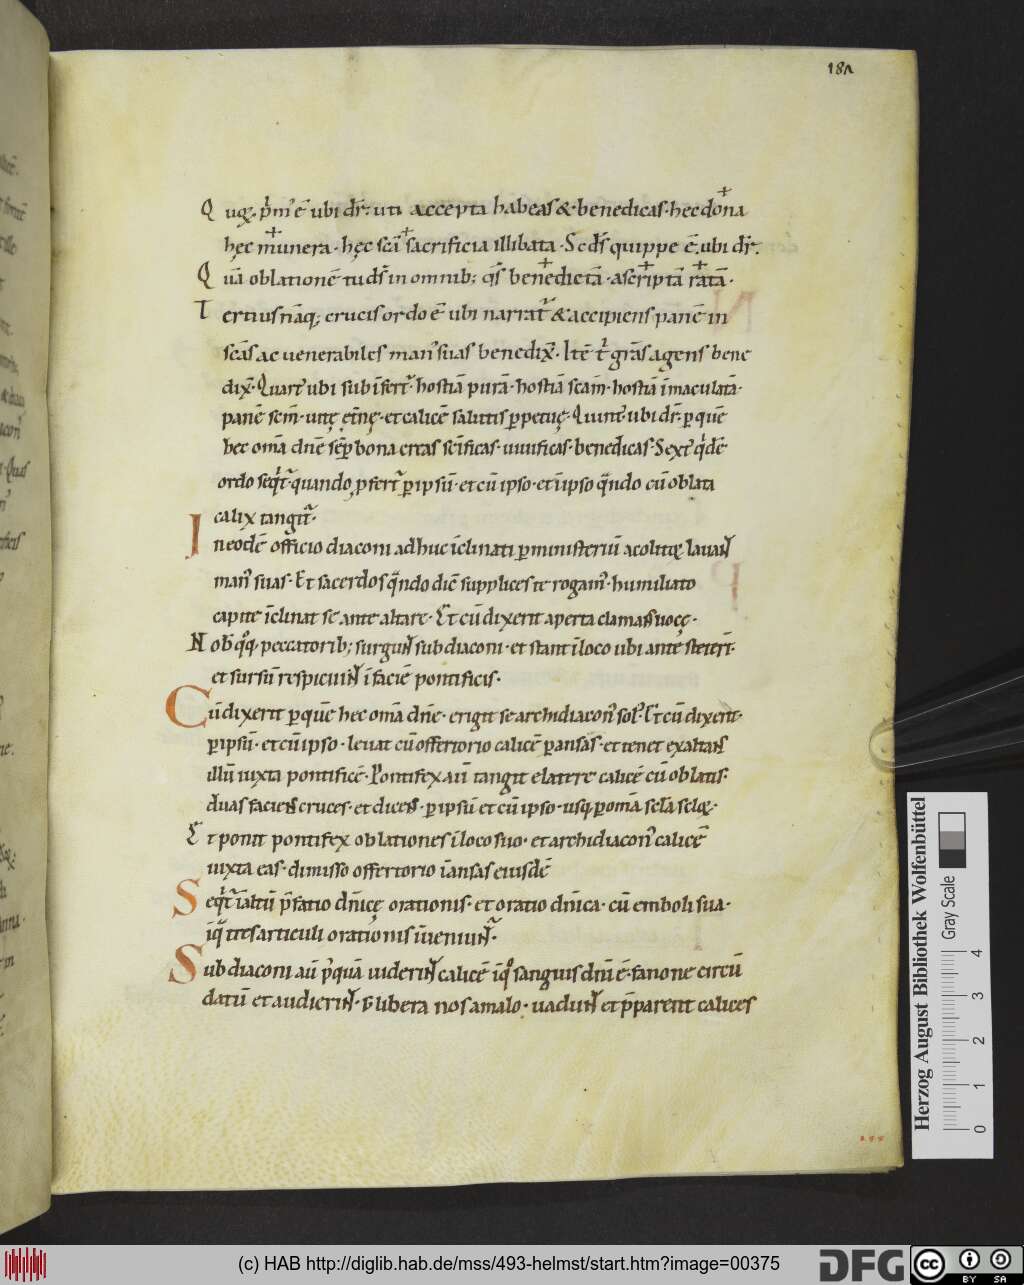 181
Quę. prim' ē ubi dr̄. uti accepta habeas & benedicas. hec dona
hęc munera. hęc scā sacrificia illibata. Scd's quippe ē. ubi dr̄.
Quā oblationē tu ds̄ in omnib; qs̄ benedictā. ascriptā ratā.
Tertius nāq; crucis ordo ē ubi narrat̄ & accipiens panē in
scās ac venerabiles man' suas benedix̄. Itē t' grās agens bene
dix̄. Quart' ubi subīfert̄. hostiā purā. hostiā scām. hostiā īmaculatā.
panē scm̄. uitę ęt̄nę. et calicē salutis ꝑpetuę. Quint' ubi dr̄. ꝑ quē
hec om̄a dn̄e sēꝑ bona creas sc̄ificas. uiuificas. benedicas. Sext' q'dē
ordo seq't̄. quando ꝓfert̄ ꝑ ipsū. et cū ipso. et ī ipso q̄ndo cū oblata
calix tangit̄.
In eodē officio diaconi adhuc īclinati ꝑ ministeriū acolitę lauant
man' suas. Et sacerdos q̄ndo dic̄ supplices te rogam'. humiliato
capite īclinat se ante altare. Et cū dixerit aperta clamans uocę.
Nob q°q; peccatorib; surgunt subdiaconi. et stant ī loco ubi antę steter̄.
et sursū respiciunt ī faciē pontificis.
Cū dixerit ꝑ quē hec om̄a dn̄e. erigit se archidiacon' sol'. Et cū dixerit.
ꝑ ipsū. et cū ipso. leuat cū offertorio calicē ꝑ ansas. et tenet exaltans
illū iuxta pontificē. Pontifex aū tangit e latere calicē cū oblatis.
duas faciens cruces. et dicens. ꝑ ipsū et cū ipso. usq; ꝑ om̄a sc̄la sc̄lo4.
Et ponit pontifex oblationes ī loco suo. et archidiacon' calicē
iuxta eas. dimisso offertorio ī ansas eiusdē
Seq't̄ ī altū p̄fatio dn̄icę orationis. et oratio dn̄ica. cū emboli sua.
ī q° tres articuli orationis īueniunt̄.
Subdiaconi aū p'quā uiderint calicē ī q° sanguis dn̄i ē. fanone circū
datū et audierint. s; libera nos a malo. uadunt et p̄parent calices
Herzog August Bibliothek Wolfenbüttel
Gray Scale
0 1 2 3 4
(c) HAB http://diglib.hab.de/mss/493-helmst/start.htm?image=00375
DFG
cc BY SA